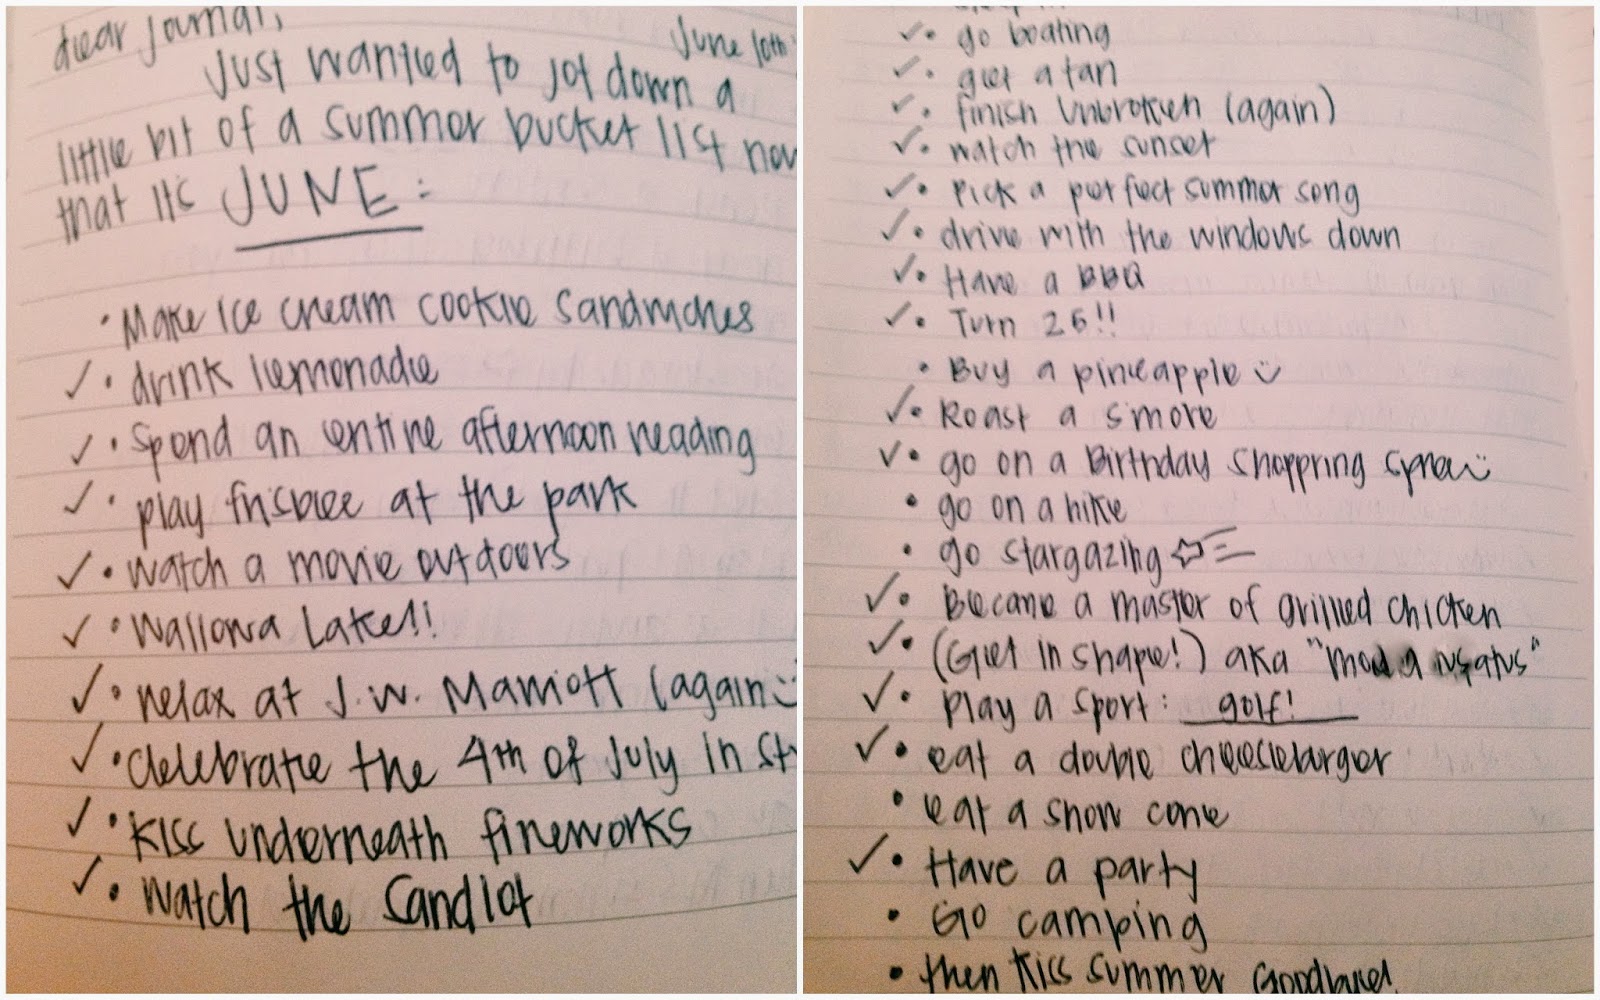 dear journal,
June 10th
Just wanted to jot down a
little bit of a summer bucket list now
that it's JUNE:
• Make ice cream cookie sandwiches
✓ • drink lemonade
✓ • spend an entire afternoon reading
✓ • play frisbee at the park
✓ • watch a movie outdoors
✓ • Wallowa Lake!!
✓ • relax at J.W. Marriott (again
✓ • celebrate the 4th of July in
✓ • kiss underneath fireworks
✓ • watch the Sandlot
✓ • go boating
✓ • get a tan
✓ • finish Unbroken (again)
✓ • watch the sunset
✓ • Pick a perfect summer song
✓ • drive with the windows down
✓ • Have a BBQ
✓ • Turn 26!!
• Buy a pineapple
✓ • Roast a s'more
✓ • go on a Birthday shoppring spree
• go on a hike
• go stargazing
✓ • Became a master of grilled chicken
✓ • (Get in shape!) aka
✓ • play a sport: golf!
✓ • eat a double cheeseburger
• eat a snow cone
✓ • Have a party
• Go camping
• then kiss summer Goodbye!